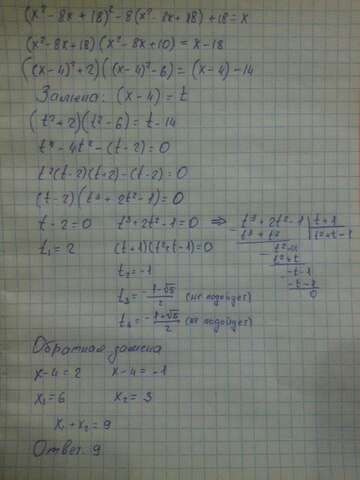 (x² - 8x + 18)² - 8(x² - 8x + 18) + 18 = x
(x² - 8x + 18)(x² - 8x + 10) = x - 18
((x - 4)² + 2)((x - 4)² - 6) = (x - 4) - 14
Замена: (x - 4) = t
(t² + 2)(t² - 6) = t - 14
t⁴ - 4t² - (t - 2) = 0
t²(t - 2)(t + 2) - (t - 2) = 0
(t - 2)(t³ + 2t² - 1) = 0
t - 2 = 0 t³ + 2t² - 1 = 0 ⇒ - t³ + 2t² - 1 | t + 1
t³ + t² | t² + t - 1
t₁ = 2 (t + 1)(t² + t - 1) = 0
- t² - 1
t² + t
t₂ = -1
- -t - 1
-t - 1
0
t₃ = (-1 - √5)/2 (не подойдет)
t₄ = (-1 + √5)/2 (не подойдет)
Обратная замена
x - 4 = 2 x - 4 = -1
x₁ = 6 x₂ = 3
x₁ + x₂ = 9
Ответ. 9